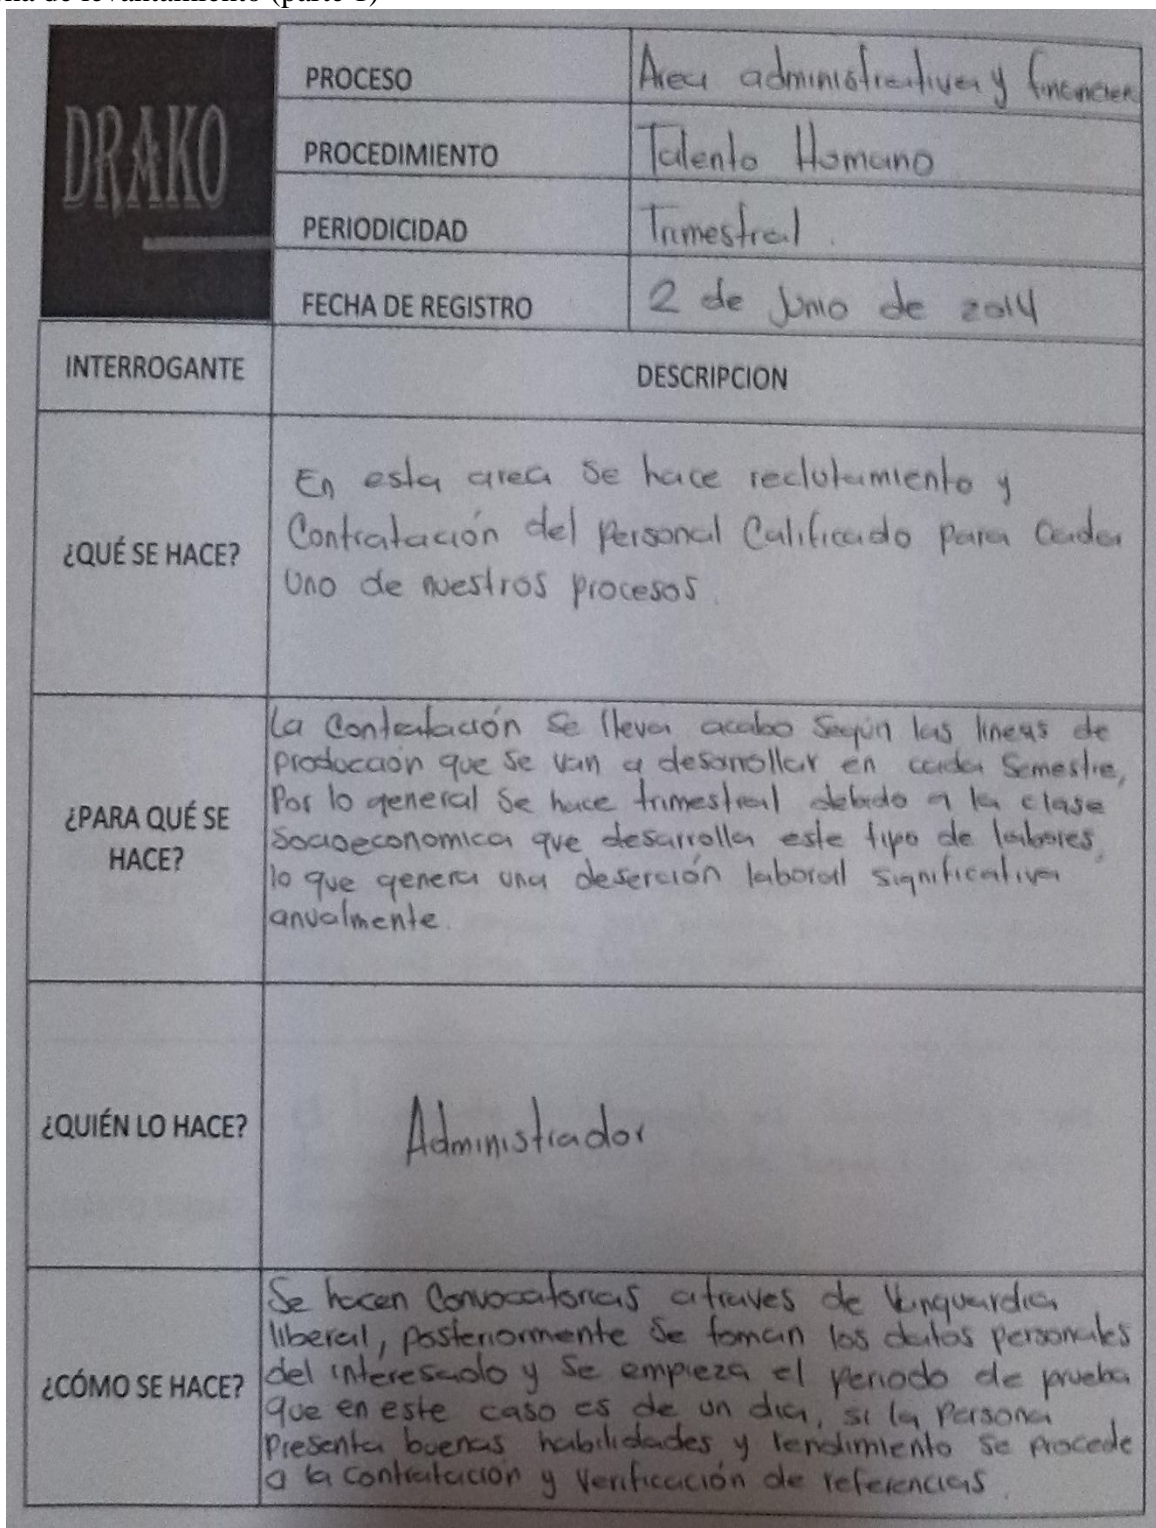 de levantamiento (parte 1)
DRAKO
PROCESO
Area administrativa y financiera
PROCEDIMIENTO
Talento Humano
PERIODICIDAD
Trimestral.
FECHA DE REGISTRO
2 de Junio de 2014
INTERROGANTE
DESCRIPCION
¿QUÉ SE HACE?
En esta area se hace reclutamiento y
Contratación del Personal Calificado para cada
uno de nuestros procesos.
¿PARA QUÉ SE
HACE?
La Contratación se lleva acabo según las lineas de
producción que se van a desarrollar en cada semestre,
Por lo general se hace trimestral debido a la clase
socioeconomica que desarrolla este tipo de labores,
lo que genera una deserción laboral significativa
anualmente.
¿QUIÉN LO HACE?
Administrador
¿CÓMO SE HACE?
Se hacen Convocatorias atraves de Vanguardia
liberal, posteriormente se toman los datos personales
del interesado y se empieza el periodo de prueba
que en este caso es de un dia, si la Persona
presenta buenas habilidades y rendimiento se procede
a la contratación y verificación de referencias.